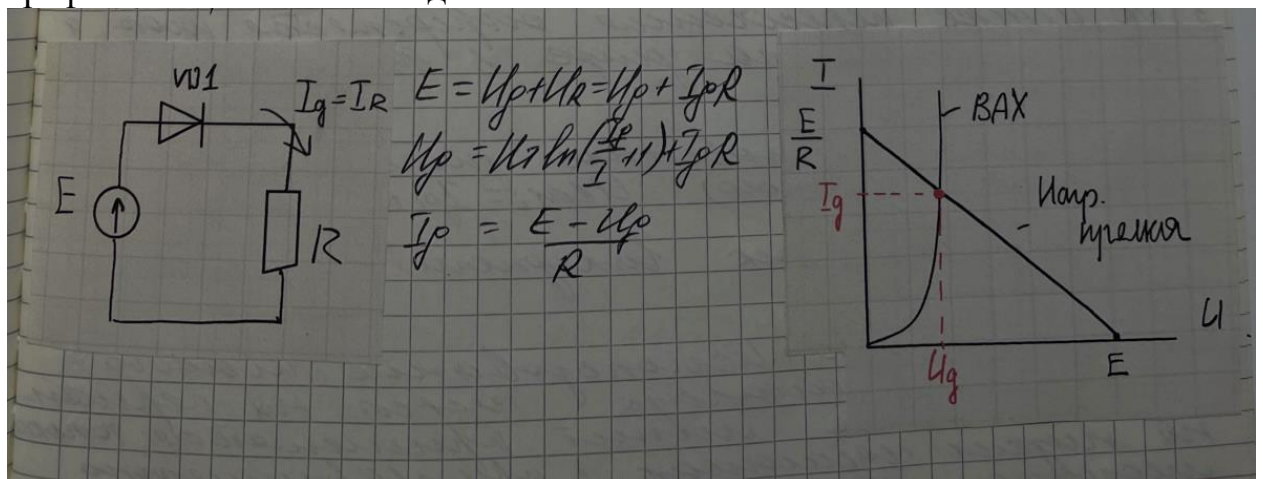 VD1
I_g = I_R
E
R
E = U_g + U_R = U_g + I_g R
U_g = U_T ln(I_g/I + 1) + I_g R
I_g = (E - U_g)/R
I
E/R
I_g
ВАХ
Нагр.
прямая
U
U_g
E